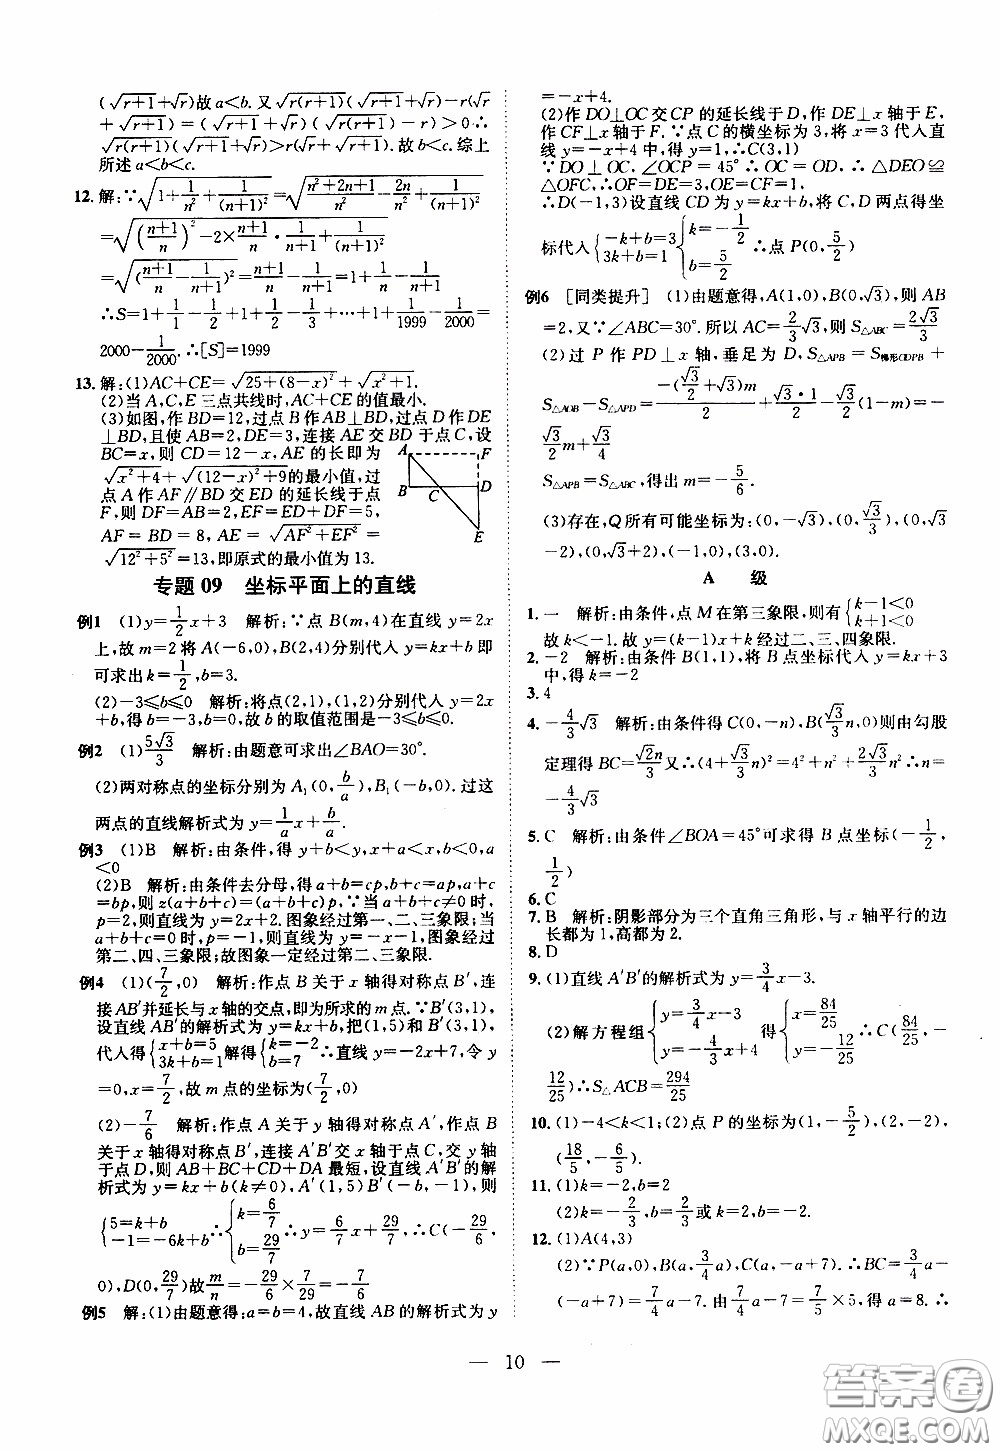 (√(r+1)+√r)故a<b.又√(r(r+1))(√(r+1)+√r)-r(√r
+√(r+1))=(√(r+1)+√r)(√(r(r+1))-r)>0∴
√(r(r+1))(√(r+1)+√r)>r(√r+√(r+1)).故b<c.综上
所述a<b<c.
12.解:∵√(1+1/n²+1/(n+1)²)=√((n²+2n+1)/n²-2n/n²+1/(n+1)²)
=√(((n+1)/n)²-2×(n+1)/n·1/(n+1)+1/(n+1)²)
=√((n+1)/n-1/(n+1))²=(n+1)/n-1/(n+1)=1+1/n-1/(n+1)
∴S=1+1/1-1/2+1+1/2-1/3+…+1+1/1999-1/2000=
2000-1/2000.∴[S]=1999
13.解:(1)AC+CE=√(25+(8-x)²)+√(x²+1).
(2)当A,C,E三点共线时,AC+CE的值最小.
(3)如图,作BD=12,过点B作AB⊥BD,过点D作DE
⊥BD,且使AB=2,DE=3,连接AE交BD于点C,设
BC=x,则CD=12-x,AE的长即为
√(x²+4)+√((12-x)²+9)的最小值,过
点A作AF∥BD交ED的延长线于点
F,则DF=AB=2,EF=ED+DF=5,
AF=BD=8,AE=√(AF²+EF²)=
√(12²+5²)=13,即原式的最小值为13.
A F
B C D
E
专题09 坐标平面上的直线
例1 (1)y=1/2x+3 解析:∵点B(m,4)在直线y=2x
上,故m=2将A(-6,0),B(2,4)分别代入y=kx+b即
可求出k=1/2,b=3.
(2)-3≤b≤0 解析:将点(2,1),(1,2)分别代入y=2x
+b,得b=-3,b=0,故b的取值范围是-3≤b≤0.
例2 (1)5√3/3 解析:由题意可求出∠BAO=30°.
(2)两对称点的坐标分别为A₁(0,b/a),B₁(-b,0).过这
两点的直线解析式为y=1/a x+b/a.
例3 (1)B 解析:由条件,得y+b<y,x+a<x,b<0,a
<0
(2)B 解析:由条件去分母,得a+b=cp,b+c=ap,a+c=
bp,则z(a+b+c)=(a+b+c)p,∵当a+b+c≠0时,
p=2,则直线为y=2x+2.图象经过第一、二、三象限;当
a+b+c=0时,p=-1,则直线为y=-x-1.图象经过
第二、四、三象限;故图象一定经过第二、三象限.
例4 (1)(7/2,0) 解析:作点B关于x轴得对称点B′,连
接AB′并延长与x轴的交点,即为所求的m点.∵B′(3,1),
设直线AB′的解析式为y=kx+b,把(1,5)和B′(3,1),
代入得{x+b=5 3k+b=1解得{k=-2 b=7∴直线y=-2x+7,令y
=0,x=7/2,故m点的坐标为(7/2,0)
(2)-7/6 解析:作点A关于y轴得对称点A′,作点
B关于x轴得对称点B′,连接A′B′交x轴于点C,交y轴
于点D,此时AB+BC+CD+DA最短,设直线A′B′的解
析式为y=kx+b(k≠0),A′(1,5)B′(-b,-1),则
{5=k+b -1=-6k+b∴{k=6/7 b=29/7∴y=6/7x+29/7,∴C(-29/6,
0),D(0,29/7)故m/n=-29/6×7/29=-7/6
例5 解:(1)由题意得;a=b=4,故直线AB的解析式为y
=-x+4.
(2)作DO⊥OC交CP的延长线于D,作DE⊥x轴于E,
作CF⊥x轴于F.∵点C的横坐标为3,将x=3代入直
线y=-x+4中,得y=1,∴C(3,1)
∵DO⊥OC,∠OCP=45°∴OC=OD,∴△DEO≌
△OFC,∴OF=DE=3,OE=CF=1.
∴D(-1,3)设直线CD为y=kx+b,将C,D两点得坐
标代入{-k+b=3 3k+b=1{k=-1/2 b=5/2∴点P(0,5/2)
例6 [同类提升] (1)由题意得,A(1,0),B(0,√3),则AB
=2,又∵∠ABC=30°.则AC=2/3√3,则S△ABC=2√3/3
(2)过P作PD⊥x轴,垂足为D,S△APB=S梯形ODPB+
S△AOB-S△APD=-(√3/2+√3)m/2+√3·1/2-√3/2(1-m)=-
√3/2m+√3/4
S△APB=S△ABC,得出m=-5/6.
(3)存在,Q所有可能坐标为:(0,-√3),(0,√3/3),(0,√3
-2),(0,√3+2)
A 级
1.一 解析:由条件,点M在第三象限,则有{k-1<0 k+1<0
故k<-1.故y=(k-1)x+k经过二、三、四象限.
2.-2 解析:由条件B(1,1),将B点坐标代入y=kx+3
中,得k=-2
3.4
4.-4/3√3 解析:由条件得C(0,-n),B(√3/3n,0)则由勾股
定理得BC=√2n/3又∴(4+√3/3n)²=4²+n²+2√3/3n²∴n=
-4/3√3
5.C 解析:由条件∠BOA=45°可求得B点坐标(-1/2,
1/2)
6.C
7.B 解析:阴影部分为三个直角三角形,与x轴平行的边
长都为1,高都为2.
8.D
9.(1)直线A′B′的解析式为y=3/4x-3.
(2)解方程组{y=3/4x-3 y=-4/3x+4得{x=84/25 y=-12/25∴C(84/25,-
12/25)∴S△ACB=294/25
10.(1)-4<k<1;(2)点P的坐标为(1,-5/2),(2,-2),
(18/5,-6/5)
11.(1)k=-2,b=2
(2)k=-2/3,b=2/3或k=2,b=-2.
12.(1)A(4,3)
(2)∵P(a,0),B(a,3/4a),C(a,-a+7).∴BC=3/4a-
(-a+7)=7/4a-7.由7/4a-7=7/5×5,得a=8.∴
— 10 —
答案圈
MXQE.COM